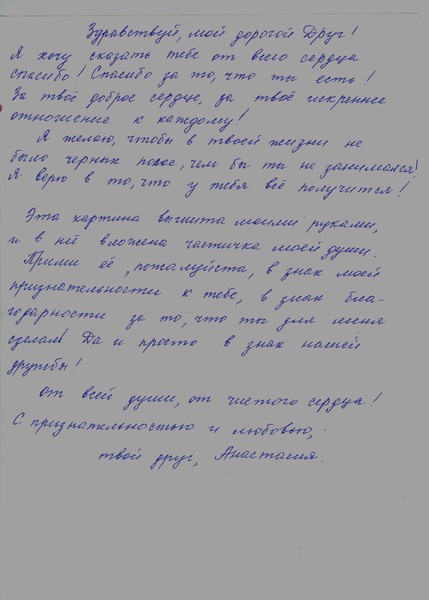 Здравствуй, мой дорогой Друг!
Я хочу сказать тебе от всего сердца
спасибо! Спасибо за то, что ты есть!
За твоё доброе сердце, за твоё искреннее
отношение к каждому!
Я желаю, чтобы в твоей жизни не
было черных полос, чем бы ты не занимался!
Я верю в то, что у тебя всё получится!
Эта картина вышита моими руками,
и в неё вложена частичка моей души.
Прими её, пожалуйста, в знак моей
признательности к тебе, в знак бла-
годарности за то, что ты для меня
сделал! Да и просто в знак нашей
дружбы!
От всей души, от чистого сердца!
С признательностью и любовью,
твой друг, Анастасия.